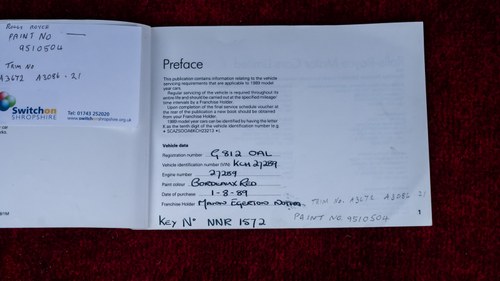 PAINT NO
9510504
TRIM NO
A3672 A3086 - 21
Switchon
SHROPSHIRE
Tel: 01743 252020
Preface
This publication contains information relating to the vehicle
servicing requirements that are applicable to 1989 model
year cars.
Regular servicing of the vehicle is required throughout its
entire life and should be carried out at the specified mileage/
time intervals by a Franchise Holder.
Upon completion of the final service schedule voucher at
the rear of the publication a new book should be obtained
from your Franchise Holder.
1989 model year cars can be identified by having the letter
K as the tenth digit of the vehicle identification number (e.g.
Vehicle data
Registration number G 812 OAL
Vehicle identification number (VIN) KCH 27289
Engine number 27289
Paint colour BORDEAUX RED
Date of purchase 1-8-89
Franchise Holder MANN EGERTON TRIM NO. A3672 A3086 21
KEY No NNR 1572 PAINT NO 9510504
1